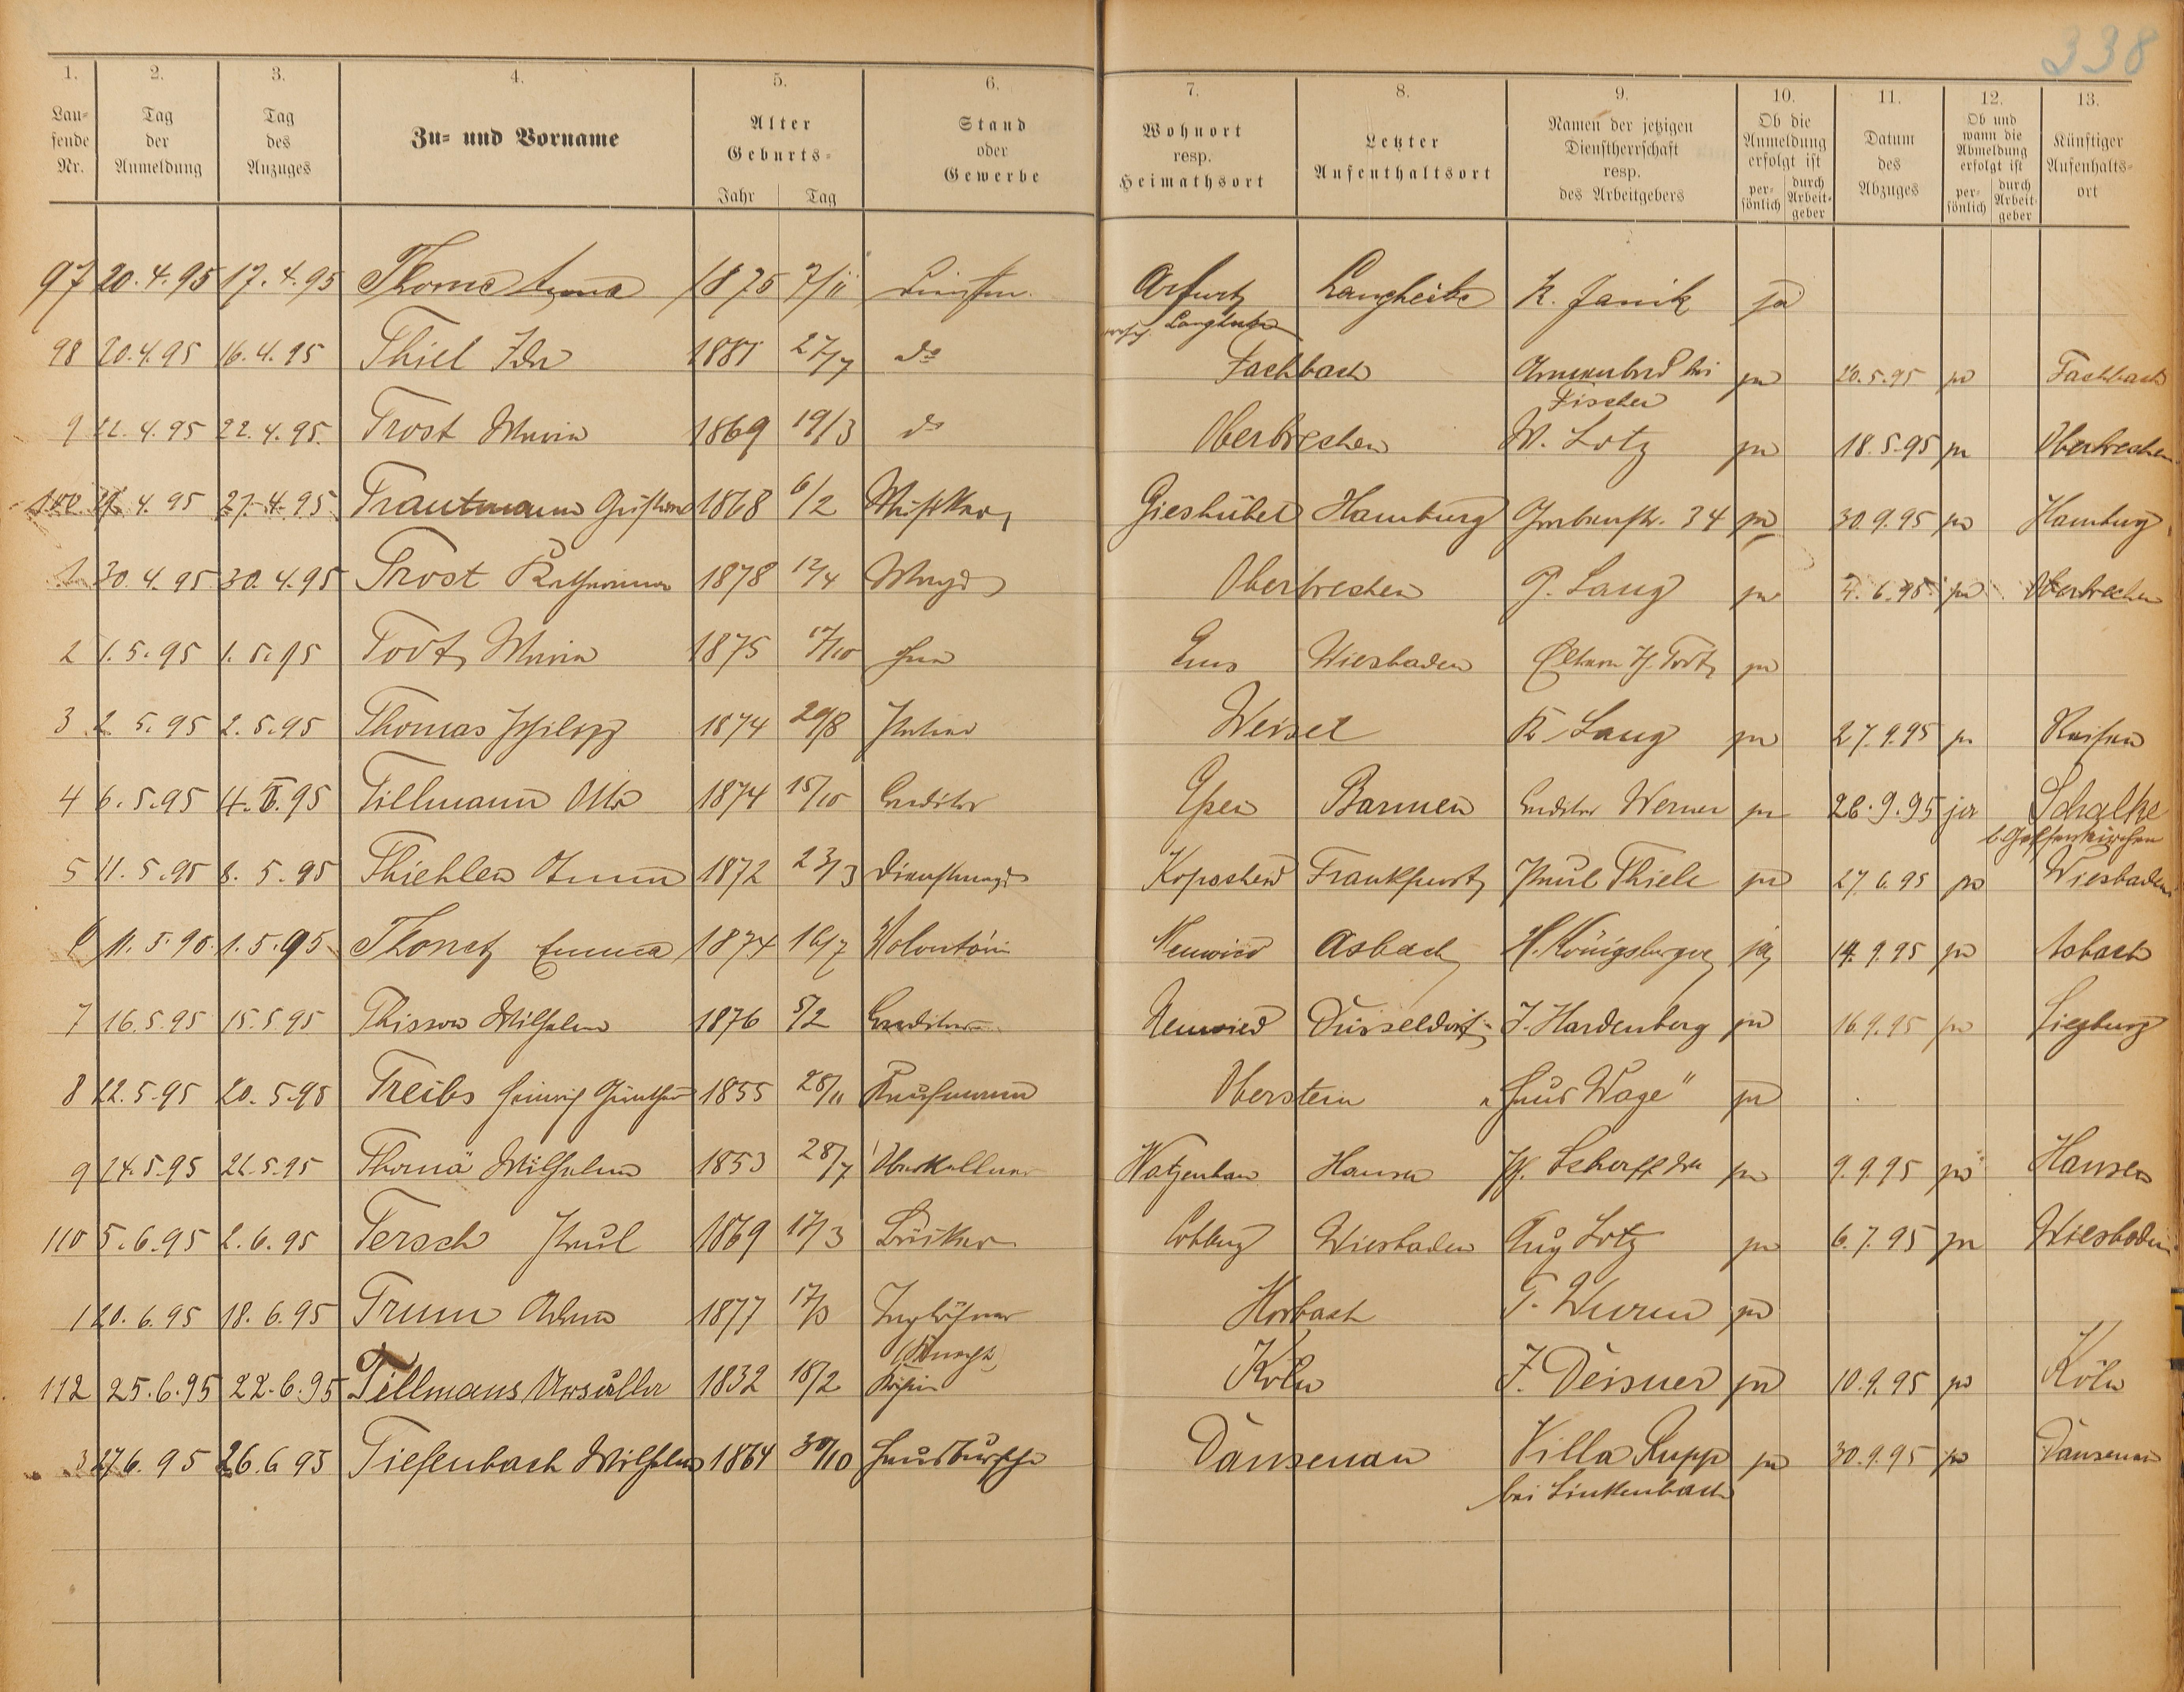 338
1. 2. 3. 4. 5. 6. 7. 8. 9. 10. 11. 12. 13.
Lau=
fende
Nr.
Tag
der
Anmeldung
Tag
des
Anzuges
Zu= und Vorname
Alter
Geburts=
Jahr Tag
Stand
oder
Gewerbe
Wohnort
resp.
Heimathsort
Letzter
Aufenthaltsort
Namen der jetzigen
Dienstherrschaft
resp.
des Arbeitgebers
Ob die
Anmeldung
erfolgt ist
per=
sönlich
durch
Arbeit=
geber
Datum
des
Abzuges
Ob und
wann die
Abmeldung
erfolgt ist
per=
sönlich
durch
Arbeit=
geber
Künftiger
Aufenthalts=
ort
97 20.4.95 17.4.95 Thome Anna 1875 7/11 Arfurt Langhecke K. Janik ja
Langhecke
98 20.4.95 16.4.95 Thiel Ida 1881 27/7 do Fachbach Armenbad bei ja 20.5.95 ja Fachbach
Fischer
9 22.4.95 22.4.95 Trost Maria 1869 19/3 do Oberbrechen W. Lotz ja 18.5.95 ja Oberbrechen
100 4.95 27.4.95 Trautmann Gustav 1868 6/2 Musiker Gieshübel Hamburg Grabenstr. 34 ja 30.9.95 ja Hamburg
1 30.4.95 30.4.95 Trost Katharina 1878 12/4 Magd Oberbrechen P. Lang ja 4.6.95 ja Oberbrechen
2 1.5.95 1.5.95 Todt Maria 1875 17/10 Ems Wiesbaden Eltern H. Todt ja
3 2.5.95 2.5.95 Thomas Philipp 1874 29/8 Weisel K Lang ja 27.9.95 ja Reisen
4 6.5.95 4.5.95 Tillmann Otto 1874 15/10 Conditor Essen Barmen Conditor Werner ja 26.9.95 ja Schalke
b. Gelsenkirchen
5 11.5.95 8.5.95 Thiehlen Anna 1872 23/3 Dienstmagd Frankfurt Paul Thiele ja 27.6.95 ja Wiesbaden
6 11.5.95 1.5.95 Thonet Emma 1874 16/7 Volontärin Neuwied Asbach H. Königsberger ja 14.9.95 ja Asbach
7 16.5.95 15.5.95 Thisson Wilhelm 1876 5/2 Conditor Neuwied Düsseldorf J. Hardenberg ja 16.9.95 ja Siegburg
8 22.5.95 20.5.95 Treibs Heinrich Günther 1855 28/11 Kaufmann Oberstein „Haus Wage" ja
9 24.5.95 22.5.95 Thomä Wilhelm 1853 28/7 Oberkellner Watzenhan Hausen Pf. Scherff Ww ja 9.9.95 ja Hausen
110 5.6.95 2.6.95 Tersch Paul 1869 17/3 Bäcker Coblenz Wiesbaden Aug Lotz ja 6.7.95 ja Wiesbaden
1 20.6.95 18.6.95 Trum Adam 1877 17/3 Taglöhner Horbach T. Wurm ja
112 25.6.95 22.6.95 Tillmans Ursulla 1832 18/2 Köchin Köln J. Deisner ja 10.9.95 ja Köln
3 27.6.95 26.6.95 Tiefenbach Wilhelm 1864 30/10 Hausbursche Dausenau Villa Rupp ja 30.9.95 ja Dausenau
bei Linkenbach